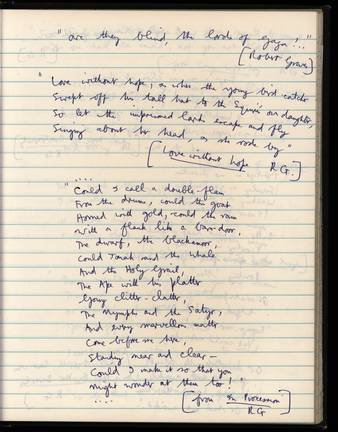 "are they blind, the lords of Gaza? ..."
[Robert Graves]
"Love without hope, as when the young bird-catcher
Swept off his tall hat to the Squire's own daughter,
So let the imprisoned larks escape and fly
Singing about her head, as she rode by"
[Love without hope R.G.]
" ....
Could I call a double-flam
From the drums, could the goat
Horned with gold, could the ram
With a flank like a barn-door,
The dwarf, the blackamoor,
Could Jonah and the Whale
And the Holy Grail,
The Ape with his platter
Going clitter-clatter,
The Nymphs and the Satyr,
And every marvellous matter
Come before me here,
Standing near and clear—
Could I make it so that you
Might wonder at them too! "
....
[from In Procession
R.G]